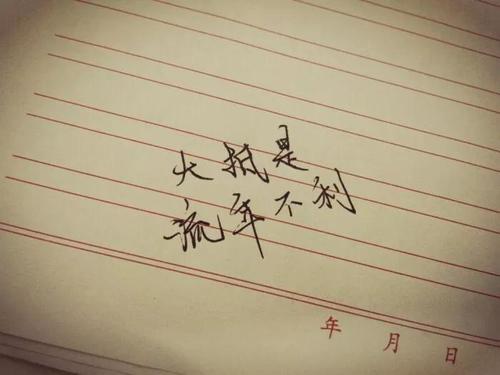 大抵是
流年不利
年 月 日